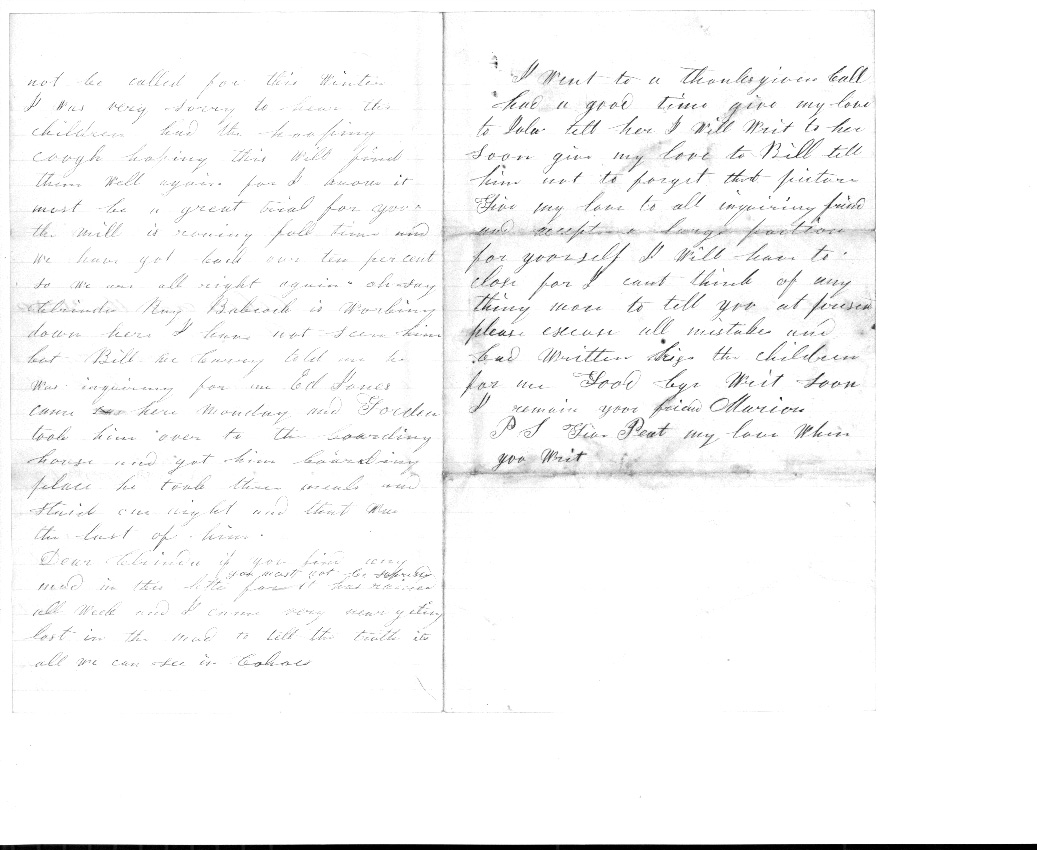 not be called for this Winter
I Was very Sorry to hear the
children had the hooping
cough hoping this Will find
them Well again for I know it
must be a great trial for you
the mill is runing full time and
We have got back our ten percent
so We are all right again oh say
Clorinda Babcock is Working
down here I have not seen him
but Bill told me he
Was inquiring for me Ed Jones
came here Monday and
took him over to the boarding
house and got him boarding
place he took three meals and
staid one night and that Was
the last of him
Dear Clorinda if you find any
you must not be suprised
mud in this letter for it has rained
all Week and I came very near geting
lost in the mud to tell the truth its
all we can see in Cohoes
I Went to a thanksgiven ball
had a good time give my love
to Lula tell her I Will Writ to her
soon give my love to Bill tell
him not to forget that picture
Give my love to all inquiring friend
and accept a large portion
for yourself I Will have to
close for I cant think of any
thing more to tell you at presen
please excuse all mistakes and
bad Written kiss the children
for me Good bye Writ Soon
I remain your friend Marion
P S Give Peat my love When
you Writ